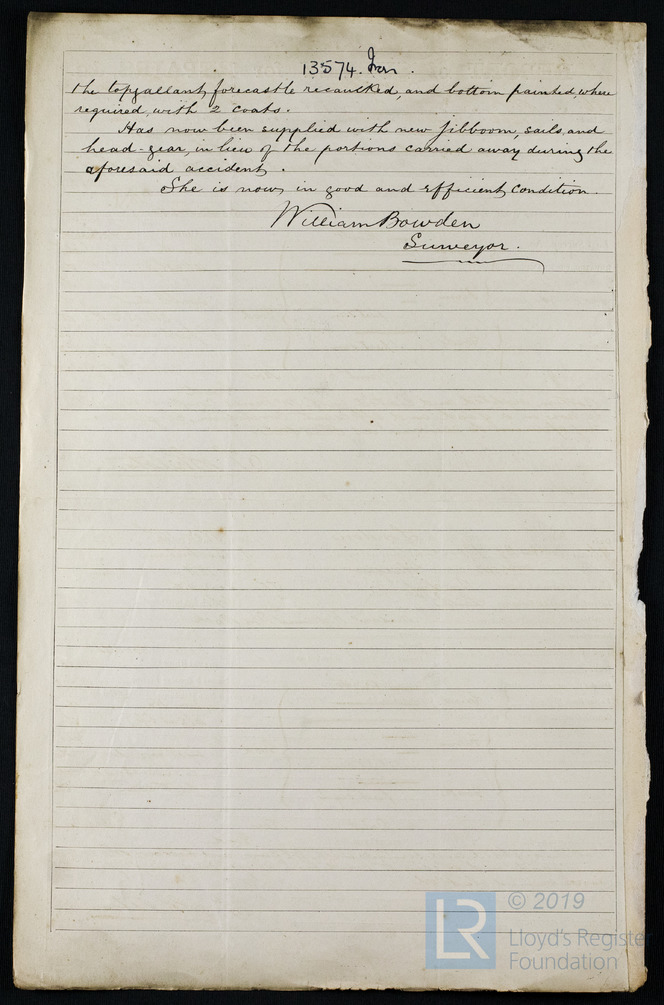 13574. Irn.
the topgallant, forecastle recaulked, and bottom painted, where
required, with 2 coats.
Has now been supplied with new jibboom, sails, and
head-gear, in lieu of the portions carried away during the
aforesaid accident.
She is now, in good and efficient condition.
William Bowden
Surveyor.
LR
© 2019
Lloyd's Register
Foundation